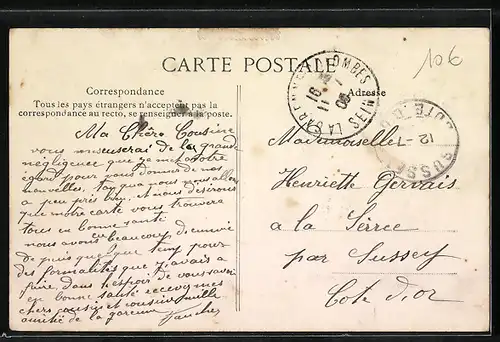 10€
CARTE POSTALE
Correspondance
Tous les pays étrangers n'acceptent pas la
correspondance au recto, se renseigner à la poste.
Adresse
LA GARENNE-COLOMBES
16
11
SEINE
12 -1
Ma Chère Cousine
vous de la grande
négligence que je met votre
égard pour vous donner de nos
nouvelles, tan que nous
a peu près bien, et nous désirons
que notre carte vous trouvera
tous en bonne santé
nous avons eu beaucoup d'ennuie
depuis quelque temp pour
des formalités que y avais a
faire, dans l'espoir de vous savoir
en bonne santé recevez mes
chers cousin et cousine mille
amitié de la garenne
Mademoiselle
Henriette Gervais
a la Serrée
par Sussey
Cote d'or